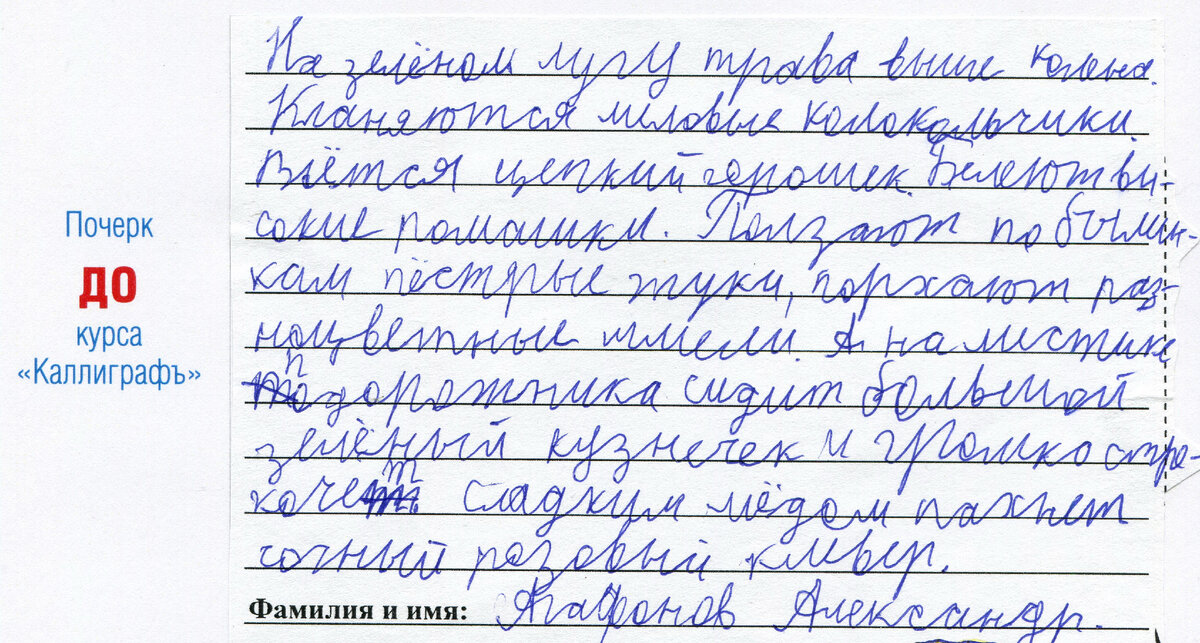 На зелёном лугу трава выше колена.
Кланяются лиловые колокольчики.
Вьётся цепкий горошек. Белеют вы-
сокие ромашки. Ползают по былин-
кам пёстрые жуки, порхают раз-
ноцветные шмели. А на листике
подорожника сидит большой
зелёный кузнечек и громко стре-
кочет. Сладким мёдом пахнет
сочный розовый клевер.
Фамилия и имя: Агафонов Александр.
Почерк
ДО
курса
«Каллиграфъ»